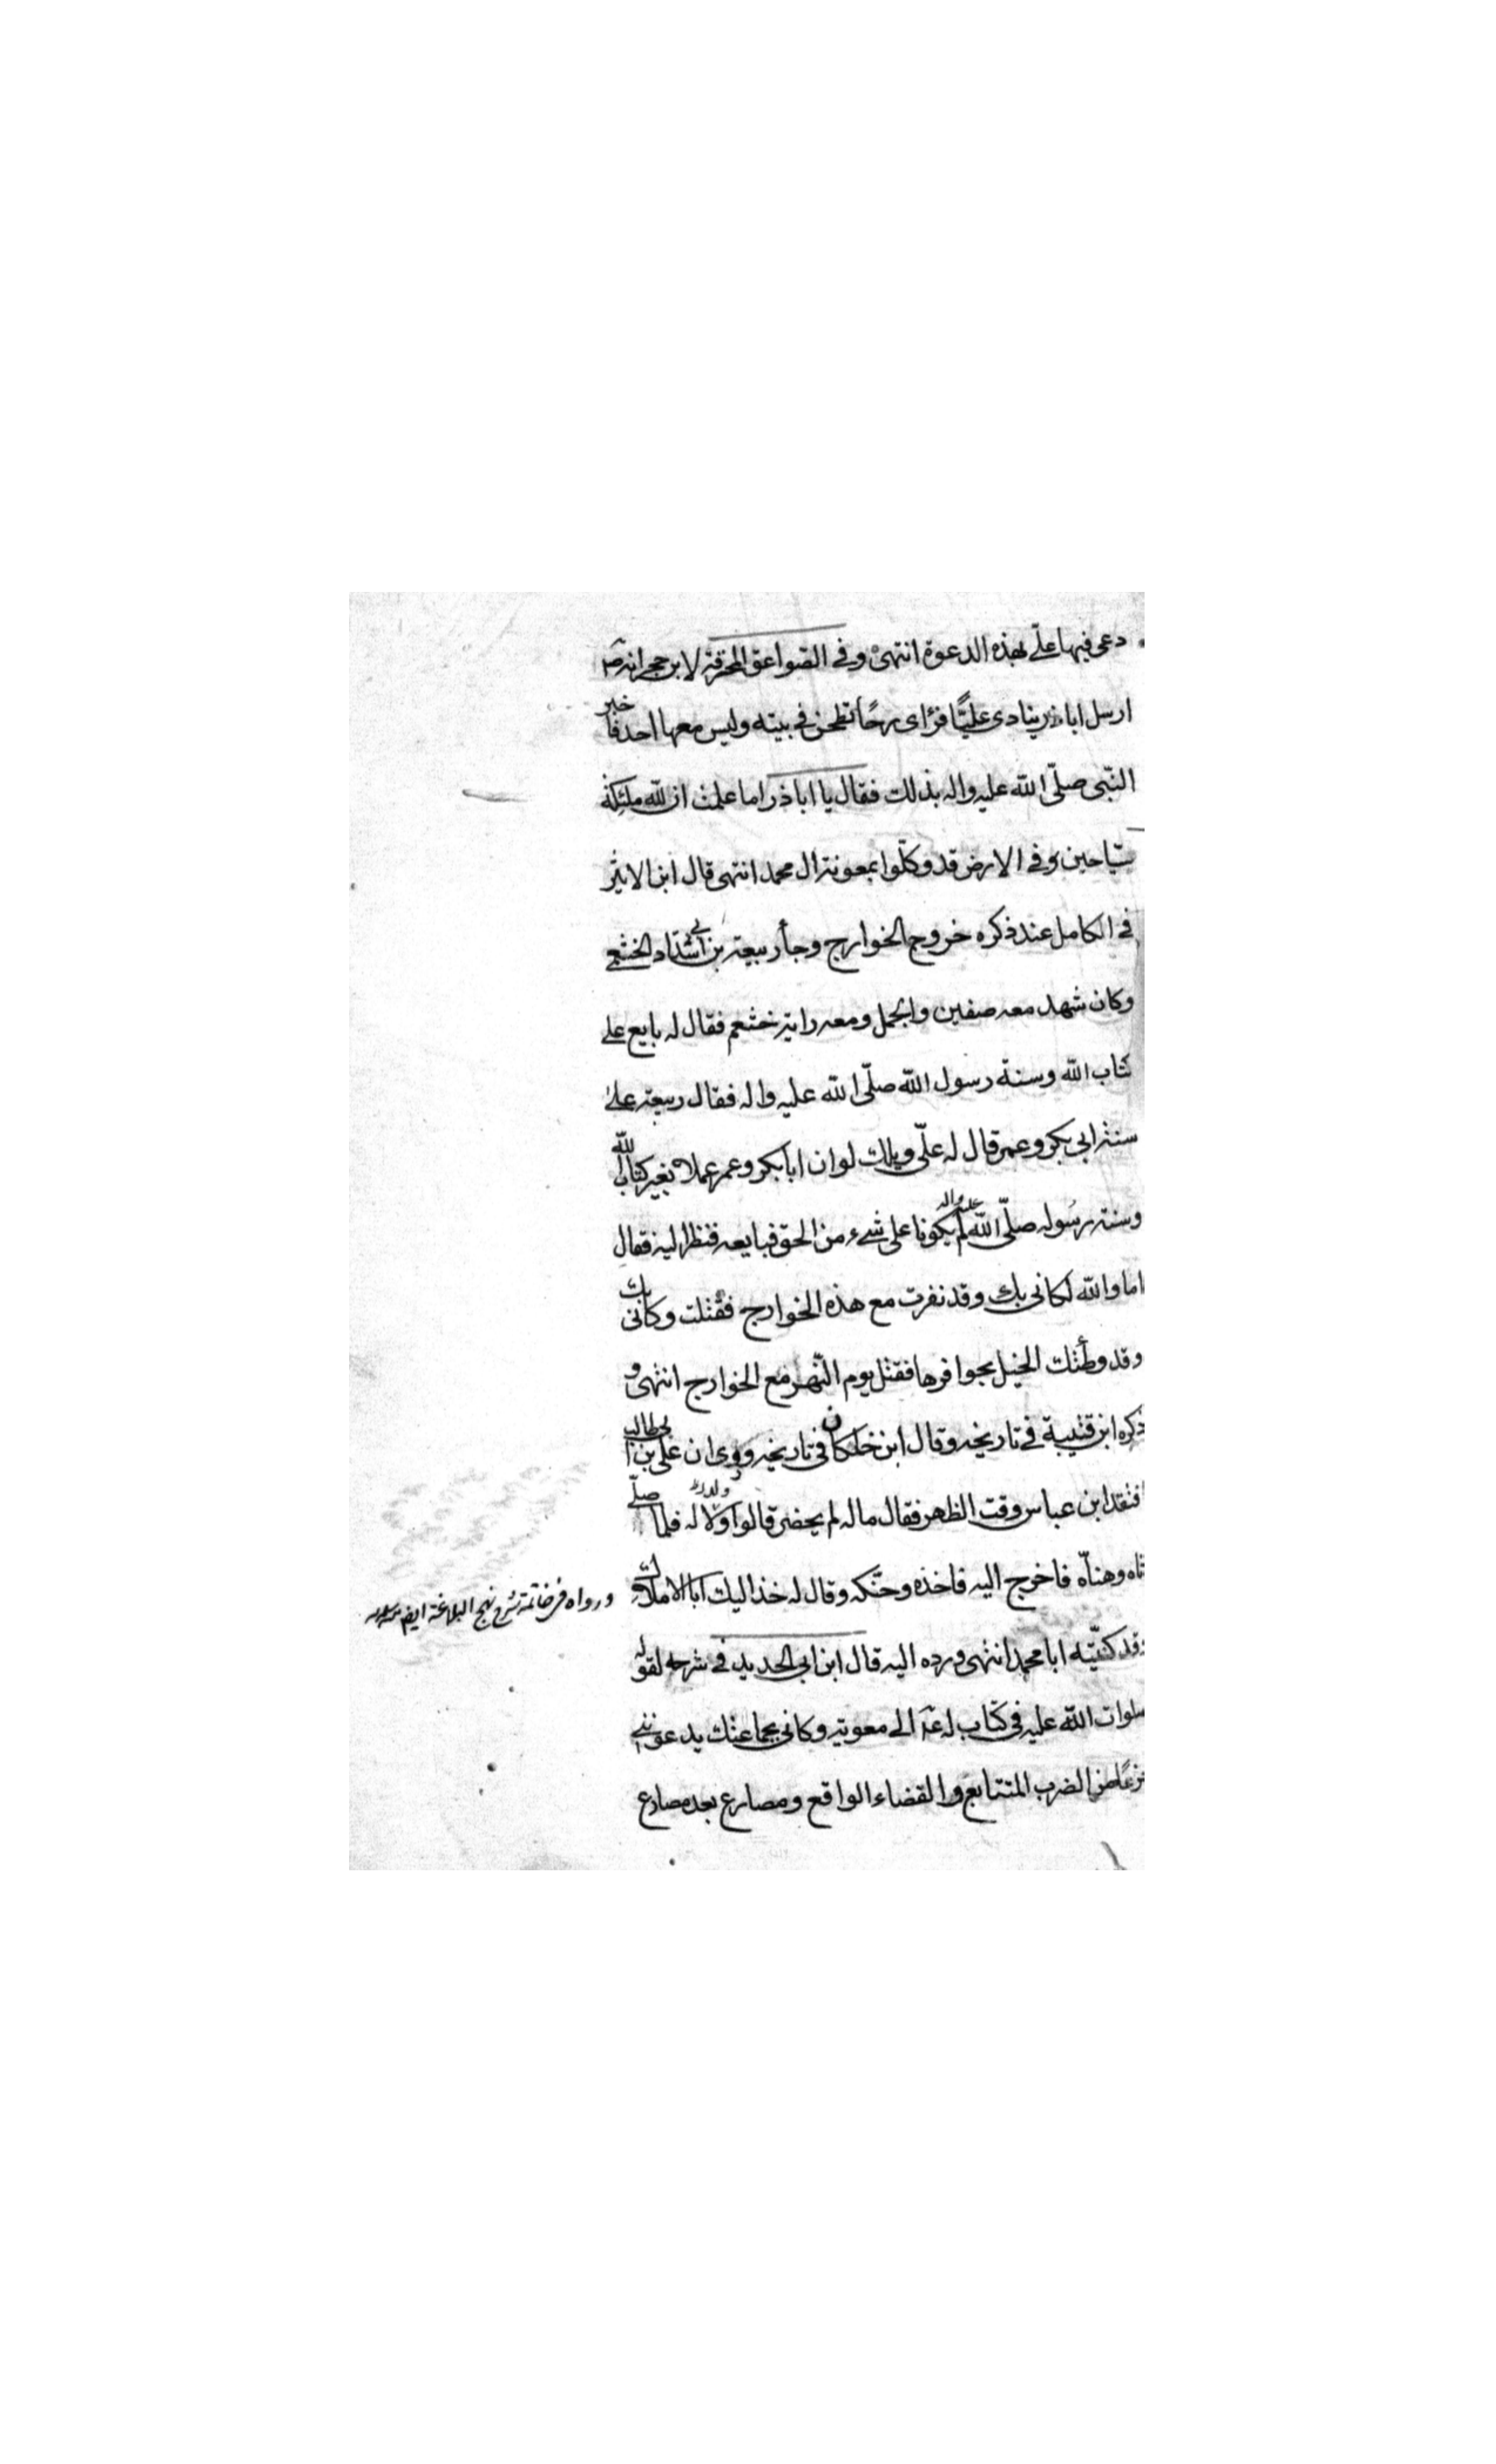 دعى فيها علّى بهذه الدعوة انتهىٰ وفى الصواعق المحرقة لابن حجر انه صٓ
ارسل اباذر ينادى عليًّا فرأى رحًا تطحن فى بيته وليس معها احد فاخبر
النّبى صلّى الله عليه واله بذلك فقال يا اباذر اما علمت ان لله ملئكة
سيّاحين فى الارض قد وكّلوا بمعونة ال محمد انتهى قال ابن الاثير
فى الكامل عند ذكره خروج الخوارج وجأ ربيعة بن ابى شدّاد الخثعمى
وكان شهد معه صفين والجمل ومعه راية خثعم فقال له بايع على
كتاب الله وسنة رسول الله صلّى الله عليه واله فقال ربيعة علىٰ
سنة ابى بكر وعمر قال له علّى ويلك لو ان ابابكر وعمر عملا بغير كتاب الله
وسنة رسوله صلّى الله عليه واله لم يكونا على شىء من الحق فبايعه فنظر اليه فقال
اما والله لكانى بك وقد نفرت مع هذه الخوارج فقتلت وكانى بك
وقد وطأتك الخيل بحوافرها فقتل يوم النّهر مع الخوارج انتهى و
ذكره ابن قتيبة فى تاريخه وقال ابن خلكان فى تاريخه وروى ان على بن ابى طالب
افتقد ابن عباس وقت الظهر فقال ماله لم يحضر قالوا ولد له فلما صلّى
تاه وهنأه فاخرج اليه فاخذه وحنّكه وقال له خذ اليك ابا الاملاك
وقد كنيّته ابا محمد انتهى ورده اليه قال ابن ابى الحديد فى شرحه لقوله
صلوات الله عليه فى كتاب له عٓ الى معوية وكانى بجماعتك يدعوننى
جزعًا من الضرب المتتابع والقضاء الواقع ومصارع بعد مصارع
ورواه فى خاتمة شرح نهج البلاغة ايضا